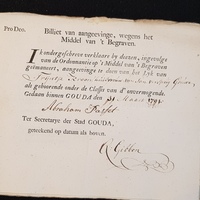 Pro Deo.
Biljet van aangeevinge, wegens het
Middel van 't Begraven.
Ik ondergeschreven verklaare by dezen, ingevolge
van de Ordonnantie op 't Middel van 't Begraven
geëmaneert, aangeevinge te doen van het Lyk van
als gehoorende onder de Classis van d'onvermogende.
Gedaan binnen GOUDA den 31 Maart 1794
Abraham
Ter Secretarye der Stad GOUDA,
geteekend op datum als boven.